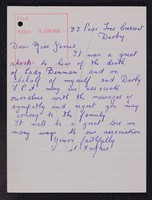 33 Pear Tree Crescent
Derby
Dear Miss James
It was a great
shock to hear of the death
of Lady Denman and on
behalf of myself and Derby
F.P.A may we associate
ourselves with the messages of
sympathy and regret you may
convey to the family.
It will be a great loss in
many ways to our association
Yours faithfully